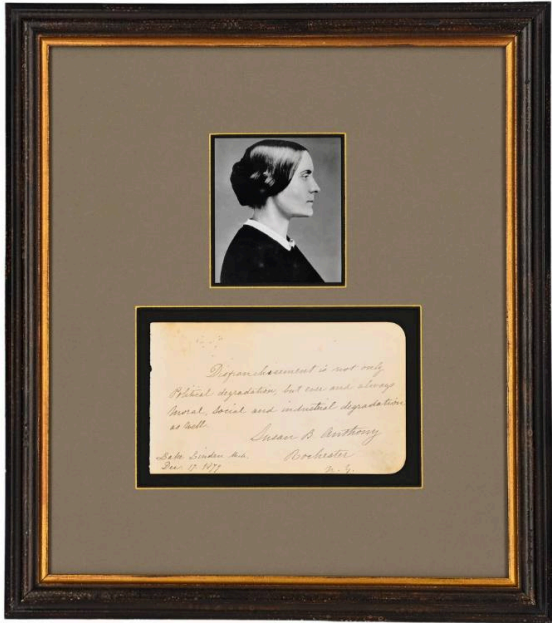 Disfranchisement is not only
Political degradation, but ever and always
Moral, Social and industrial degradation
as well
Susan B Anthony
Rochester
N.Y.
Linden
Dec 17. 1877